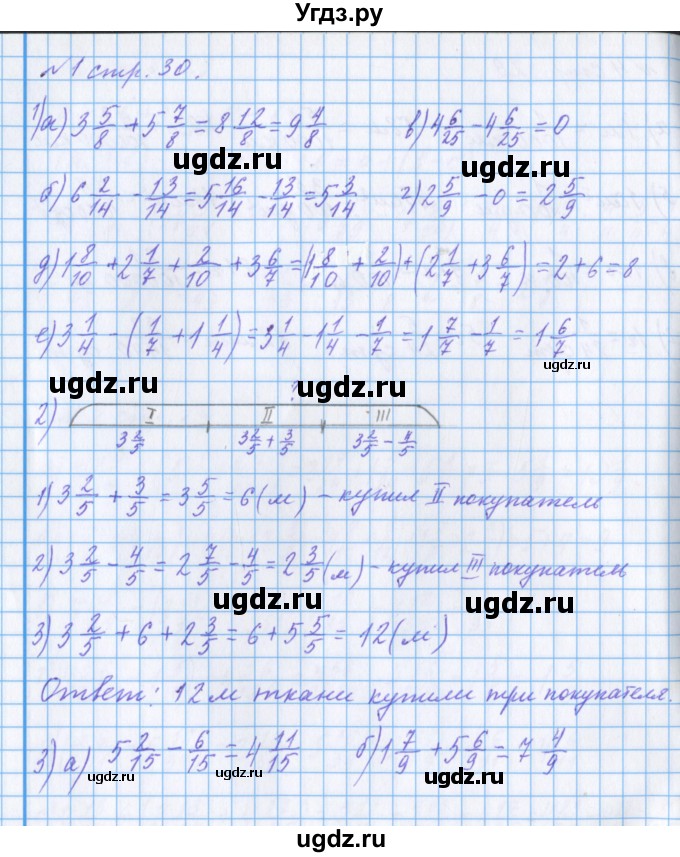 Угдз.ру
№1 стр. 30.
1) а) 3 5/8 + 5 7/8 = 8 12/8 = 9 4/8 в) 4 6/25 - 4 6/25 = 0
ugdz.ru ugdz.ru
б) 6 2/14 - 13/14 = 5 16/14 - 13/14 = 5 3/14 г) 2 5/9 - 0 = 2 5/9
ugdz.ru ugdz.ru
д) 1 8/10 + 2 1/7 + 2/10 + 3 6/7 = (1 8/10 + 2/10) + (2 1/7 + 3 6/7) = 2 + 6 = 8
е) 3 1/4 - (1/7 + 1 1/4) = 3 1/4 - 1 1/4 - 1/7 = 1 7/7 - 1/7 = 1 6/7
ugdz.ru
ugdz.ru ugdz.ru
?
2) I II III
3 2/5 3 2/5 + 3/5 3 2/5 - 4/5
ugdz.ru
1) 3 2/5 + 3/5 = 3 5/5 = 6 (м) - купил II покупатель
ugdz.ru
2) 3 2/5 - 4/5 = 2 7/5 - 4/5 = 2 3/5 (м) - купил III покупатель
ugdz.ru ugdz.ru
3) 3 2/5 + 6 + 2 3/5 = 6 + 5 5/5 = 12 (м)
ugdz.ru
Ответ: 12 м ткани купили три покупателя.
3) а) 5 2/15 - 6/15 = 4 11/15 б) 1 7/9 + 5 6/9 = 7 4/9
ugdz.ru ugdz.ru
ugdz.ru